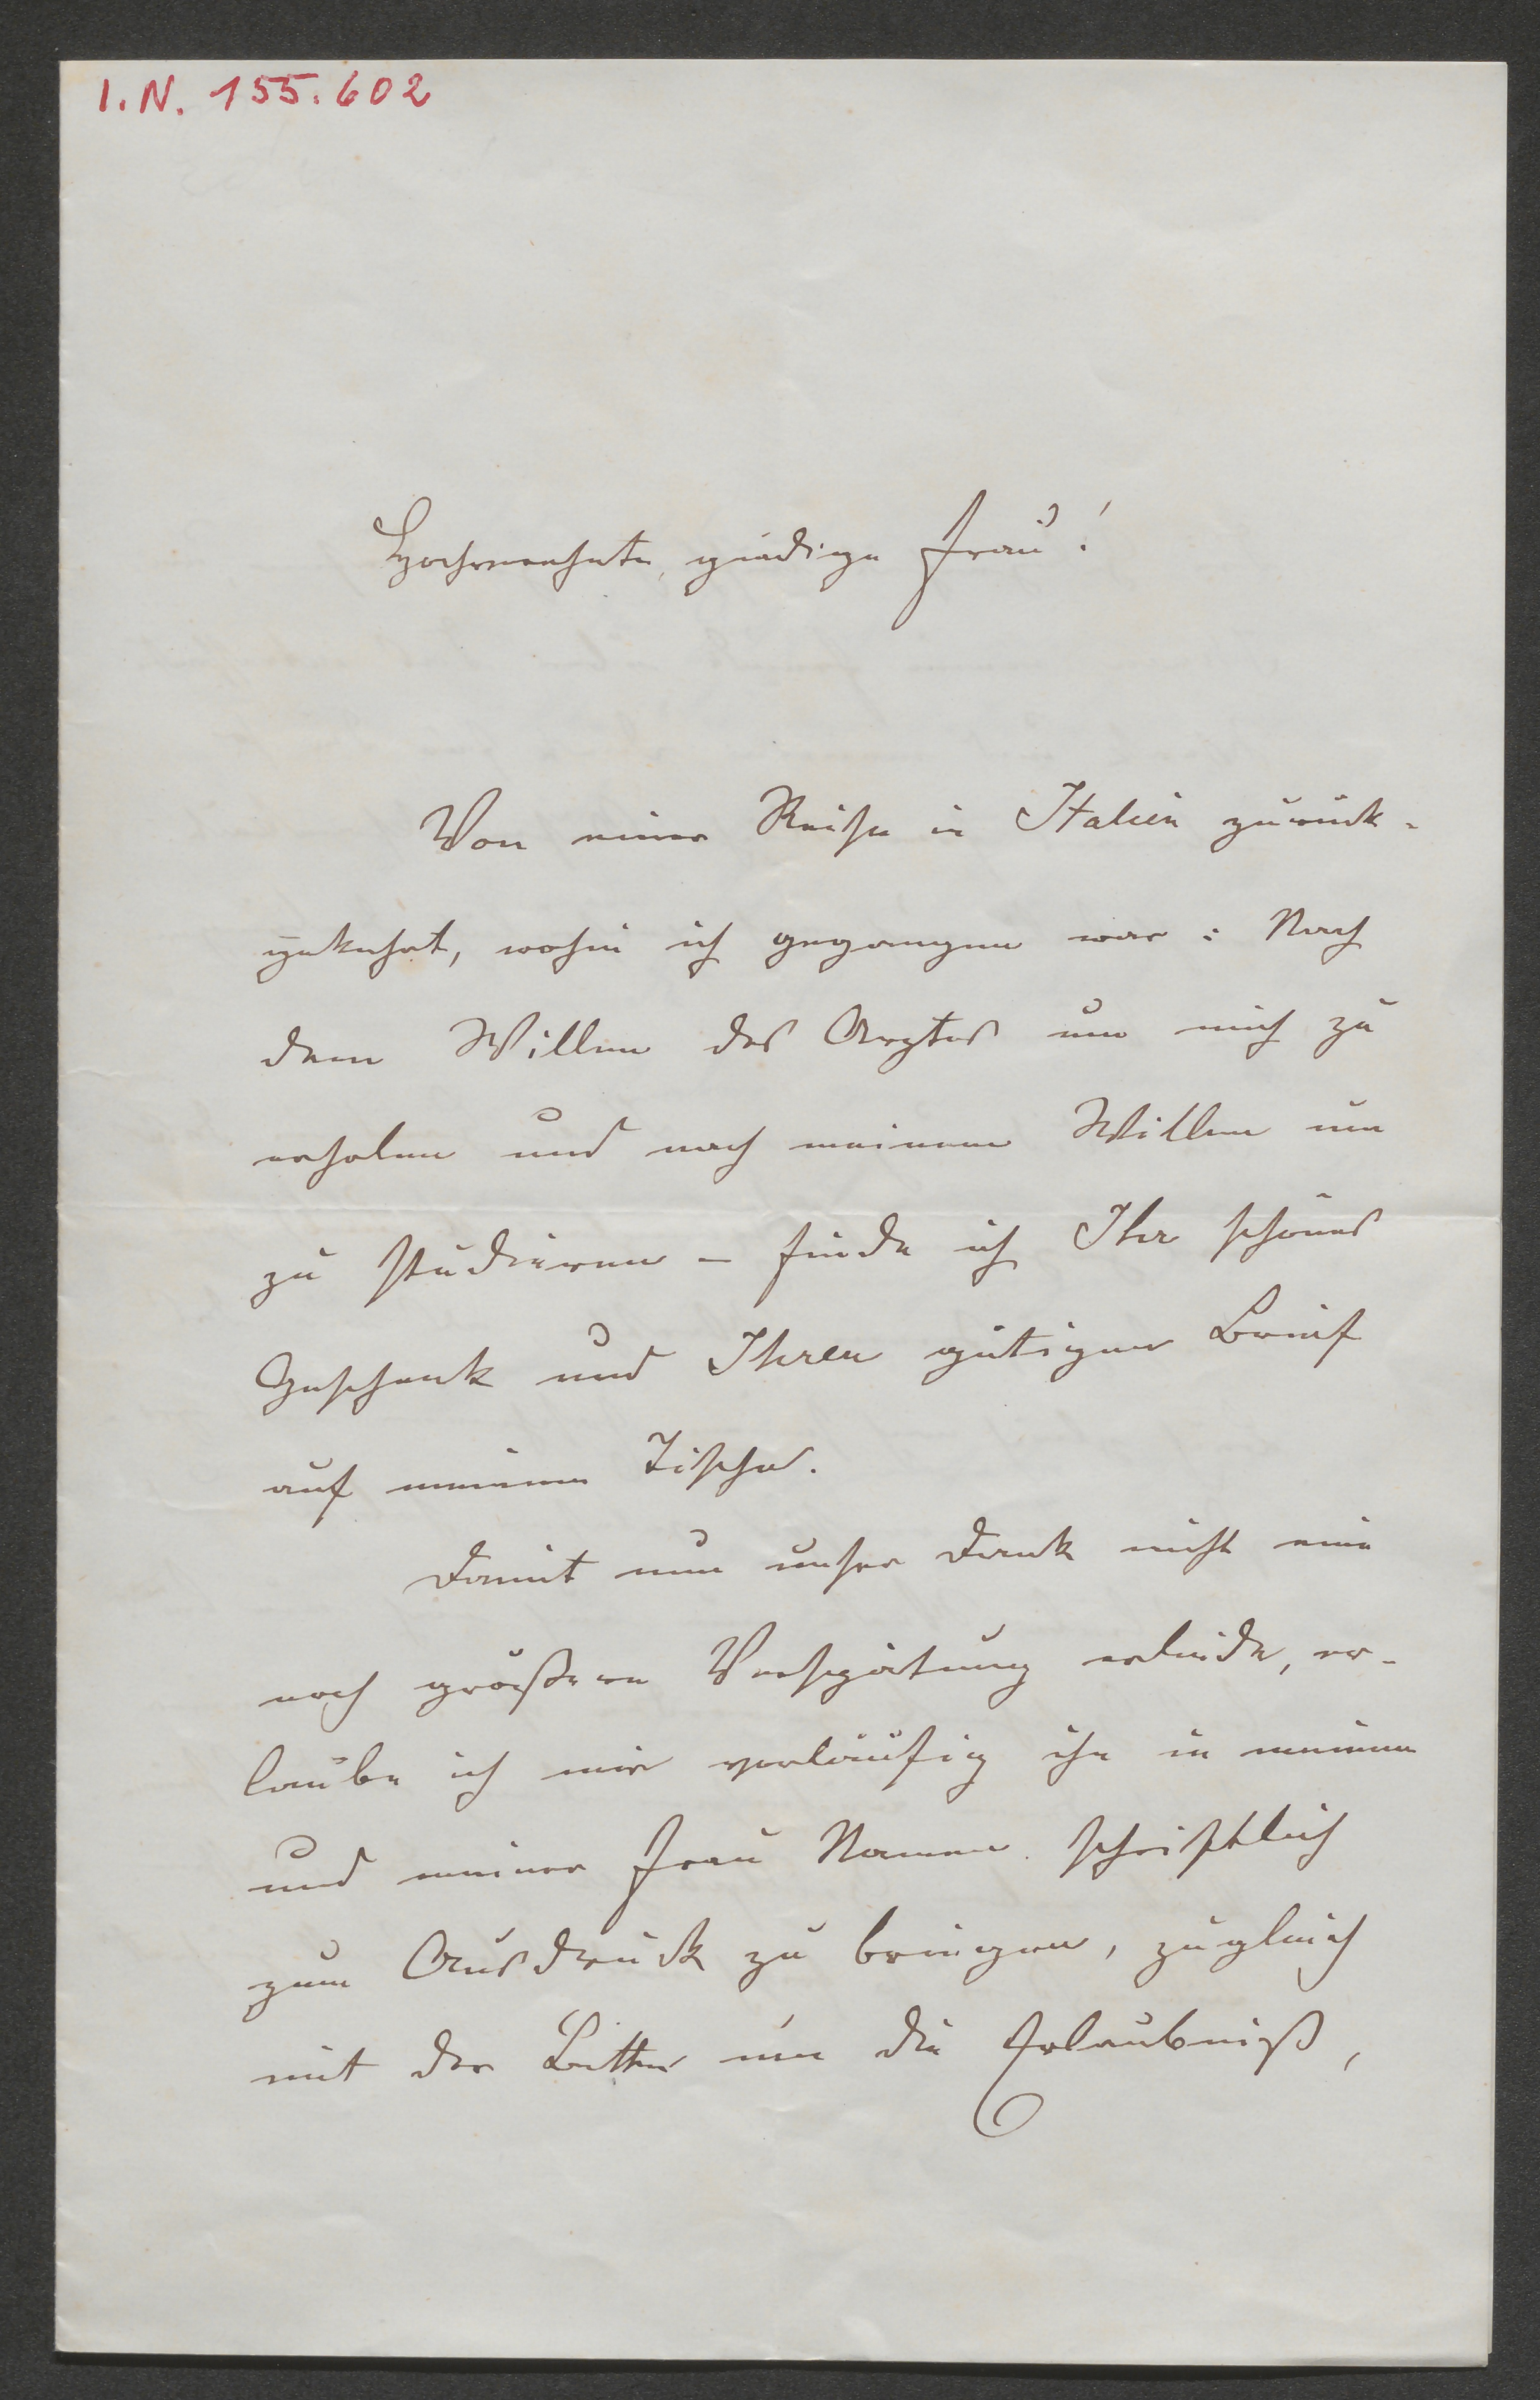 I.N. 155.602
Hochverehrte, gnädige Frau!
Von einer Reise in Italien zurück-
gekehrt, wohin ich gegangen war: Nach
dem Willen des Arztes um mich zu
erholen und nach meinem Willen um
zu studieren – finde ich Ihr schönes
Geschenk und Ihren gütigen Brief
auf meinem Tische.
Damit nun unser Dank nicht eine
noch größere Verspätung erleide, er-
laube ich mir vorläufig ihn in meinem
und meiner Frau Namen schriftlich
zum Ausdruck zu bringen, zugleich
mit der Bitte um die Erlaubniß,